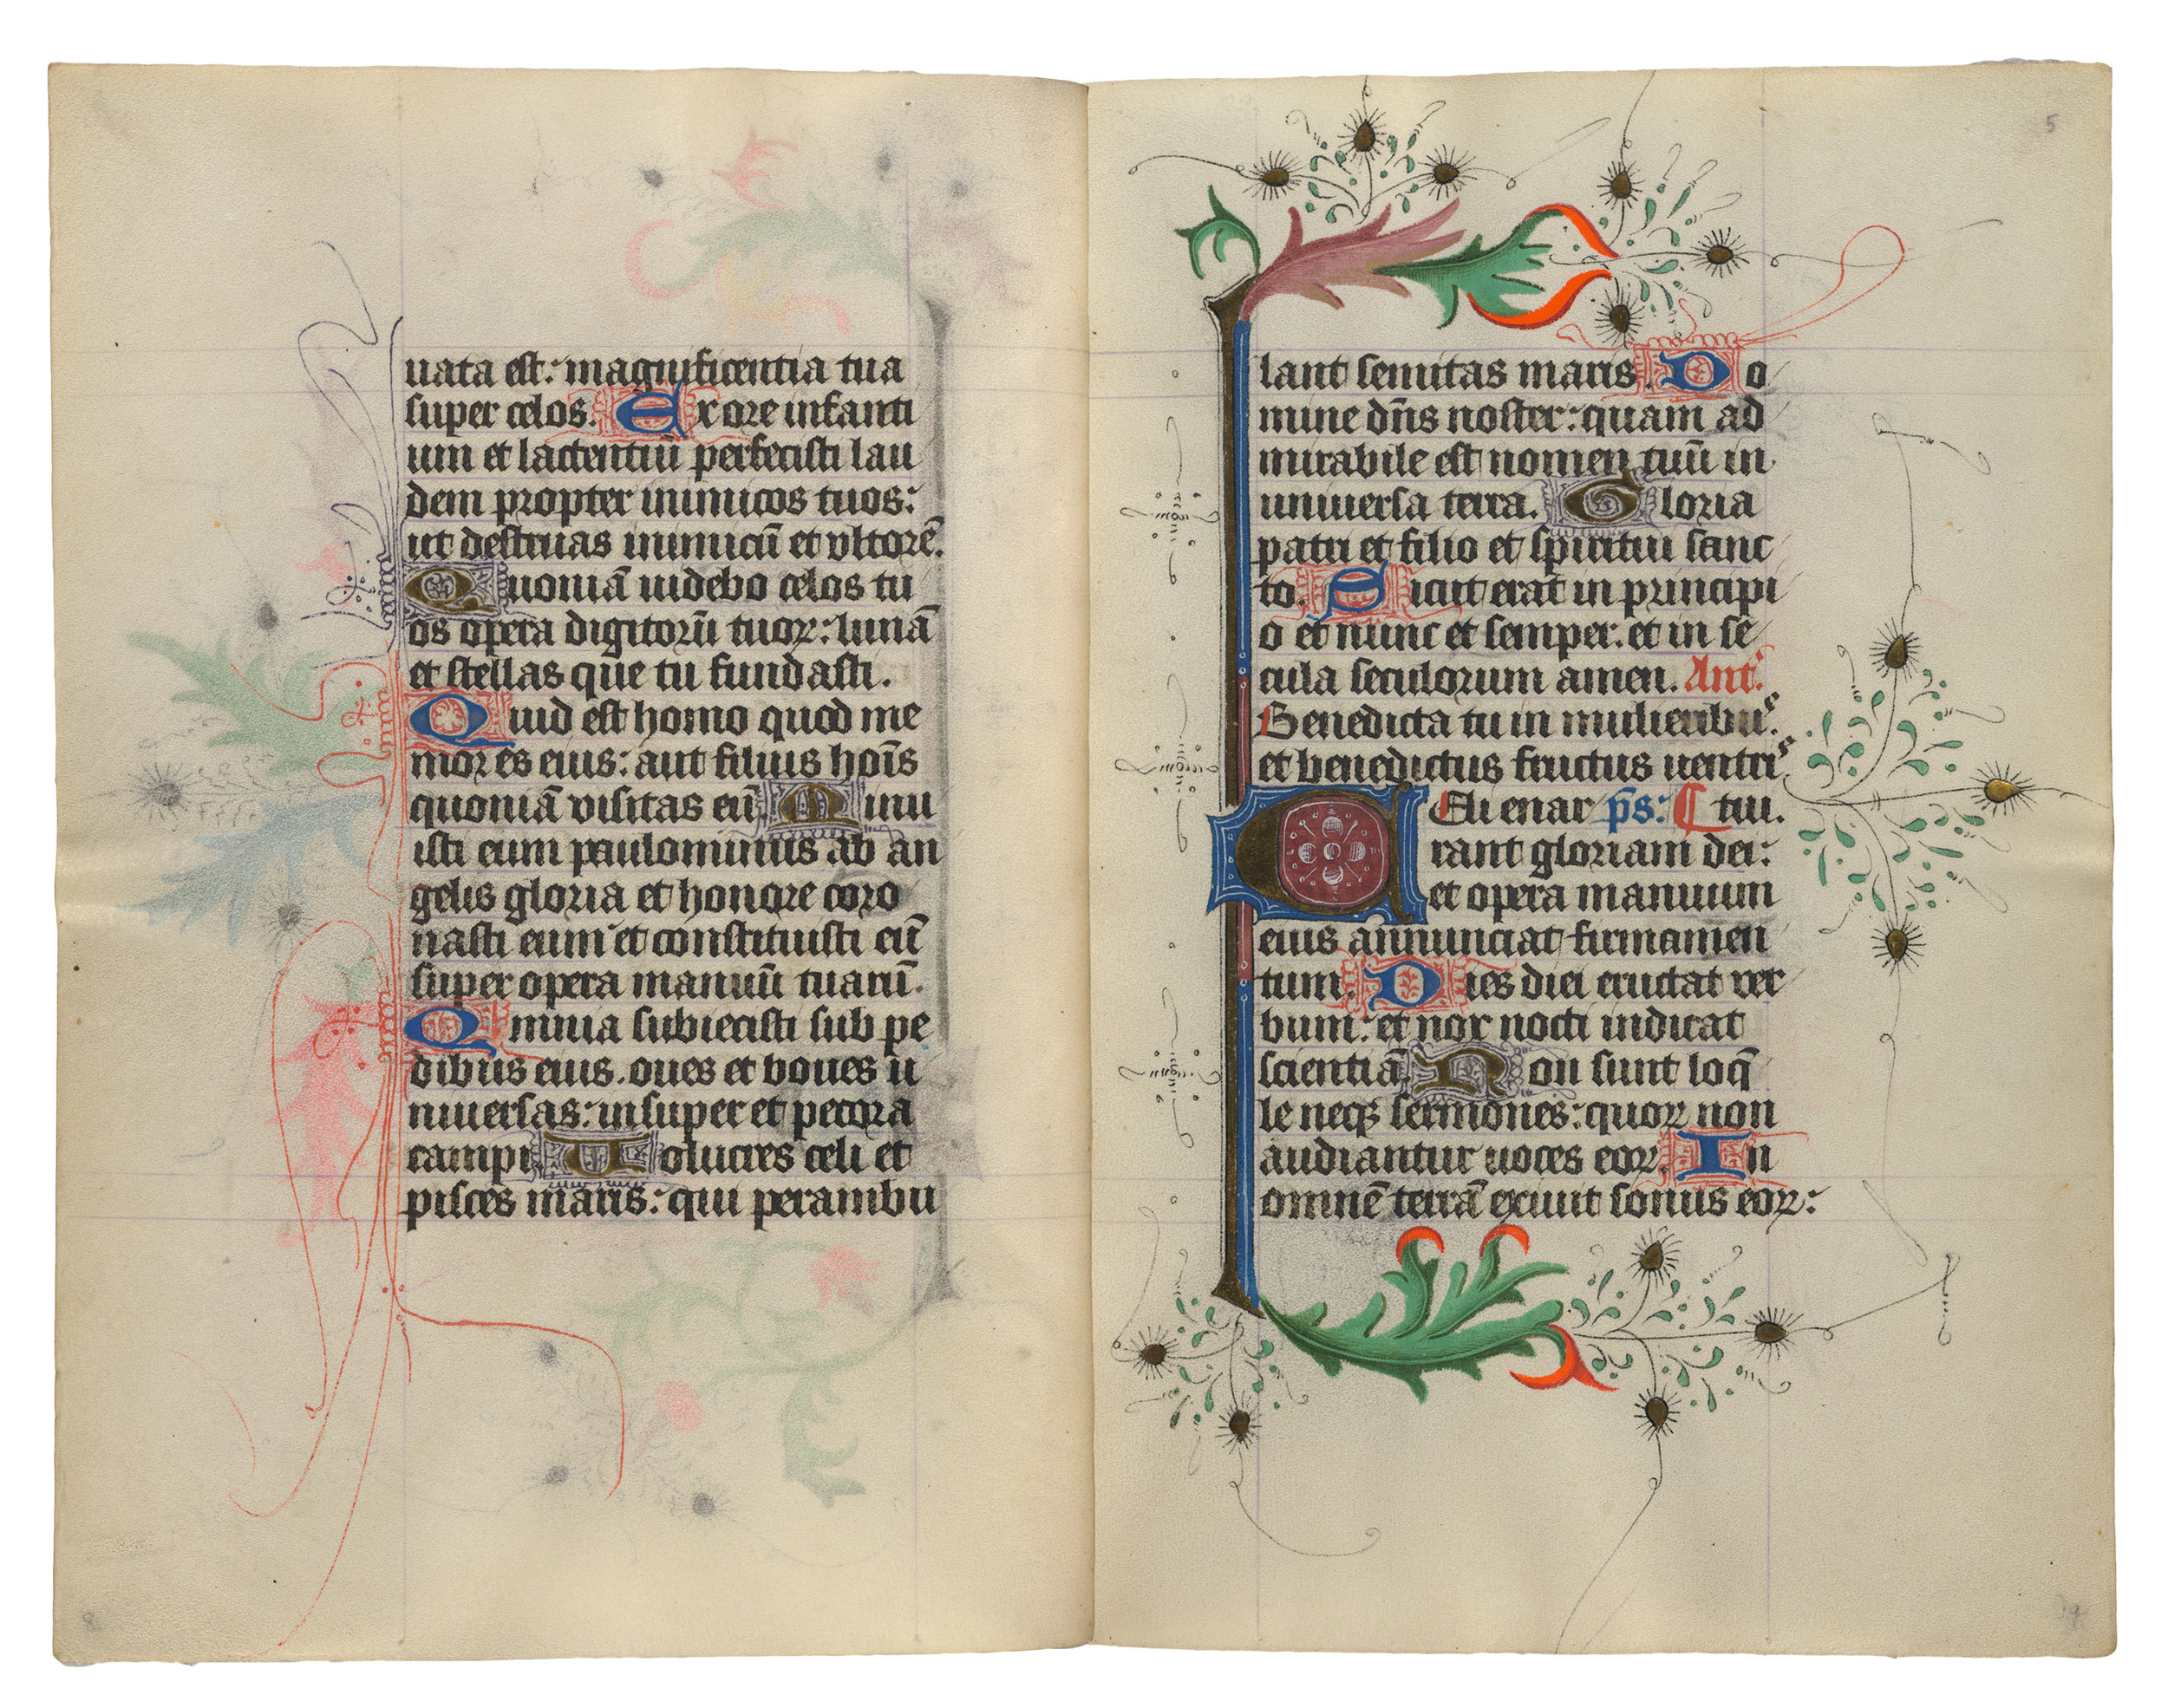 uata est: magnificentia tua
super celos. Ex ore infanti
um et lactentiū perfecisti lau
dem propter inimicos tuos:
ut destruas inimicū et vltorē.
Quoniā uidebo celos tu
os opera digitorū tuoꝝ: lunā
et stellas que tu fundasti.
Quid est homo quod me
mor es eius: aut filius hoīs
quoniā visitas eū. Minu
isti eum paulominus ab an
gelis gloria et honore coro
nasti eum et constituisti eū
super opera manuū tuarū.
Omnia subiecisti sub pe
dibus eius. oues et boues u
niuersas: insuper et pecora
campi. Uolucres celi et
pisces maris: qui perambu
8
5
lant semitas maris. Do
mine dn̄s noster: quam ad
mirabile est nomen tuū in
uniuersa terra. Gloria
patri et filio et spiritui sanc
to. Sicut erat in principi
o et nunc et semper. et in se
cula seculorum amen. Ant.
Benedicta tu in mulieribus.
et benedictus fructus uentris
Celi enar p̄s: ⸿ tui.
rant gloriam dei:
et opera manuum
eius annunciat firmamen
tum. Dies diei eructat ver
bum: et nox nocti indicat
scientiā. Non sunt loq̄
le neqꝫ sermones: quoꝝ non
audiantur uoces eoꝝ. In
omnē terrā exiuit sonus eoꝝ:
9